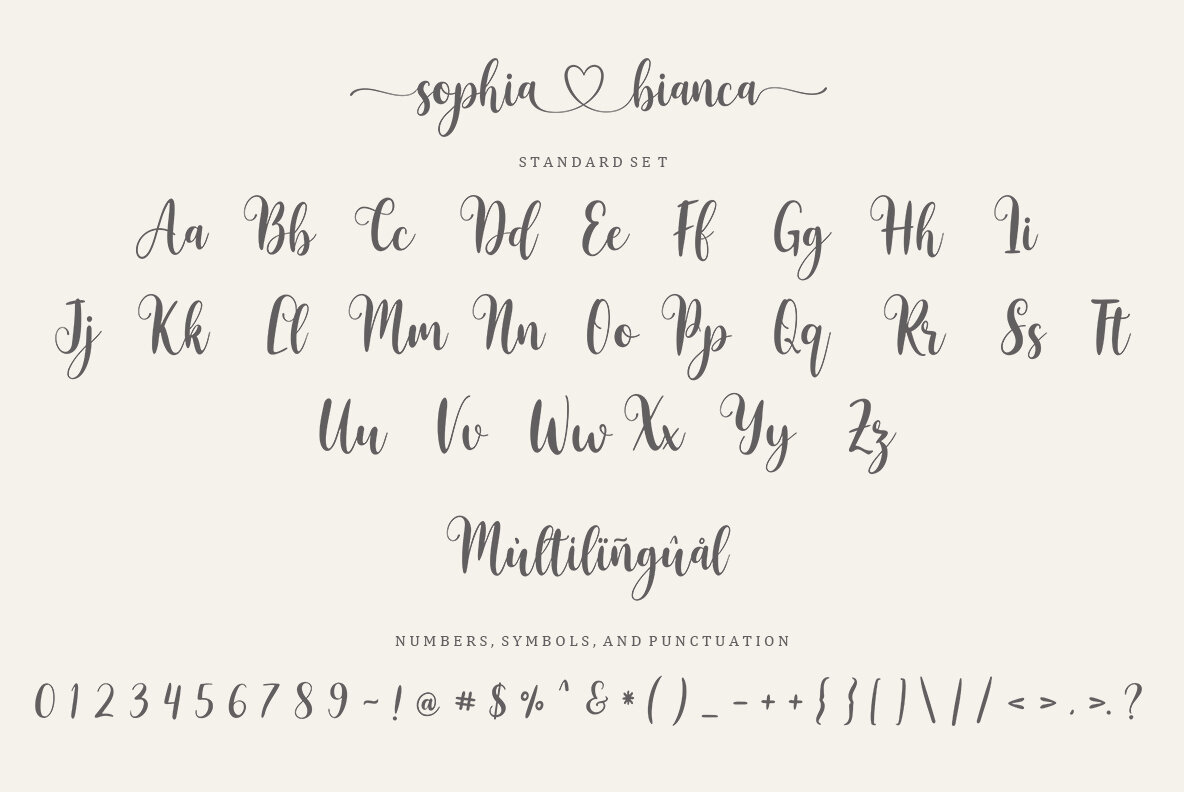 sophia ♡ bianca
STANDARD SET
Aa Bb Cc Dd Ee Ff Gg Hh Ii
Jj Kk Ll Mm Nn Oo Pp Qq Rr Ss Tt
Uu Vv Ww Xx Yy Zz
Mùltilïñgûål
NUMBERS, SYMBOLS, AND PUNCTUATION
0 1 2 3 4 5 6 7 8 9 ~ ! @ # $ % ^ & * ( ) _ - + + { } [ ] \ | / < > , >. ?